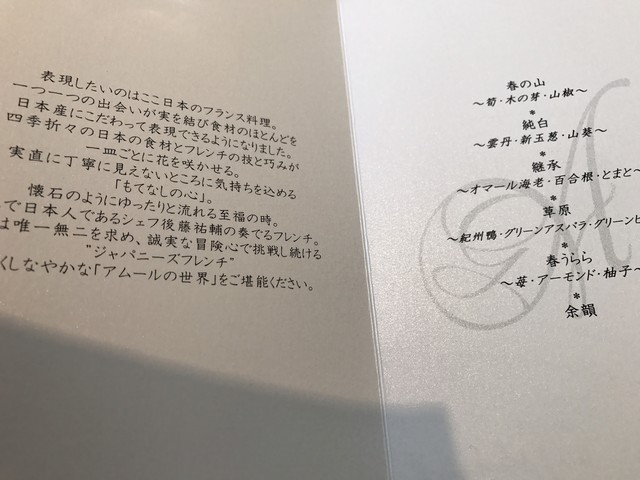 表現したいのはここ日本のフランス料理。
一つ一つの出会いが実を結び食材のほとんどを
日本産にこだわって表現できるようになりました。
四季折々の日本の食材とフレンチの技と巧みが
一皿ごとに花を咲かせる。
実直に丁寧に見えないところに気持ちを込める
「もてなしの心」。
懐石のようにゆったりと流れる至福の時。
で日本人であるシェフ後藤祐輔の奏でるフレンチ。
は唯一無二を求め、誠実な冒険心で挑戦し続ける
"ジャパニーズフレンチ"
くしなやかな「アムールの世界」をご堪能ください。
春の山
～筍・木の芽・山椒～
*
純白
～雲丹・新玉葱・山葵～
*
継承
～オマール海老・百合根・とまと～
*
草原
～紀州鴨・グリーンアスパラ・グリーンピ
*
春うらら
～苺・アーモンド・柚子～
*
余韻